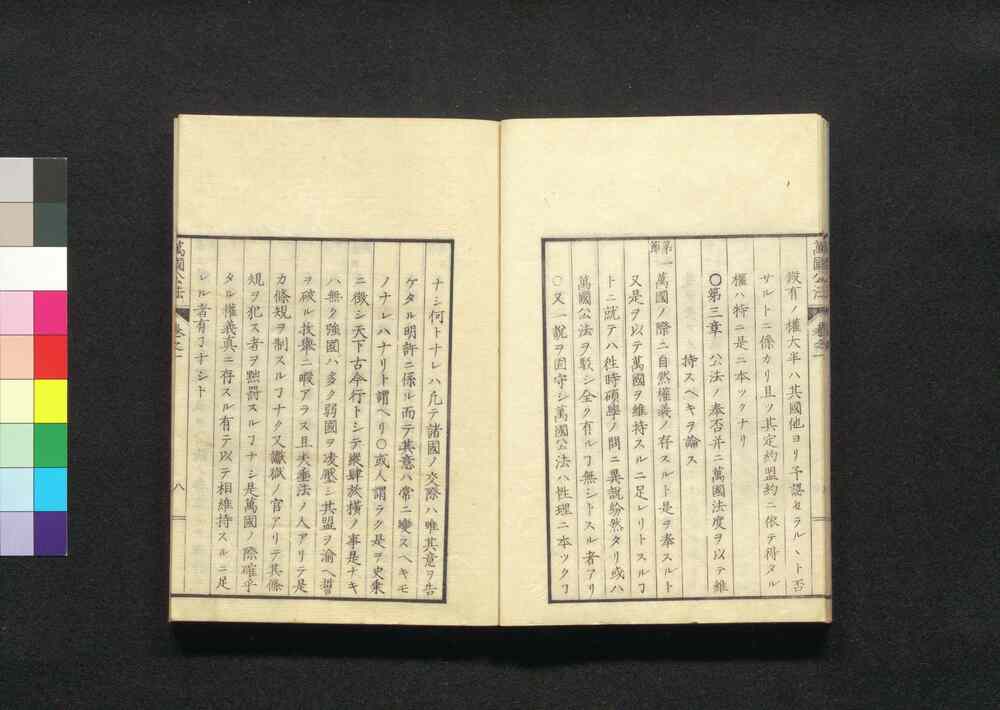 萬國公法 卷之一
設有ノ權大半ハ其國他ヨリ予認セラルヽト否
サルトニ係カリ且ツ其定約盟約ニ依テ得タル
權ハ特ニ是ニ本ックナリ
〇第三章 公法ノ奉否并ニ萬國法度ヲ以テ維
持スヘキヲ論ス
第一節
萬國ノ際ニ自然權義ノ存スルト是ヲ奉スルト
又是ヲ以テ萬國ヲ維持スルニ足レリトスルヿ
トニ就テハ往時碩學ノ間ニ異說紛然タリ或ハ
萬國公法ヲ駁シ全ク有ルヿ無シトスル者アリ
〇又一說ヲ固守シ萬國公法ハ性理ニ本ックヿ
ナシ何トナレハ凡テ諸國ノ交際ハ唯其意ヲ告
ケタル明許ニ係ル而テ其意ハ常ニ變スヘキモ
ノナレハナリト謂ヘリ〇或人謂ラク是ヲ史乘
ニ徴シ天下古今行トシテ縱肆放橫ノ事是ナキ
ハ無ク強國ハ多ク弱國ヲ凌壓シ其盟ヲ渝ヘ誓
ヲ破ル枚擧ニ暇アラス且夫垂法ノ人アリテ是
カ條規ヲ制スルヿナク又讞獄ノ官アリテ其條
規ヲ犯ス者ヲ黜罰スルヿナシ是萬國ノ際確乎
タル權義真ニ存スル有テ以テ相維持スルニ足
シル者有ヿナシト
萬國公法 卷之一 八